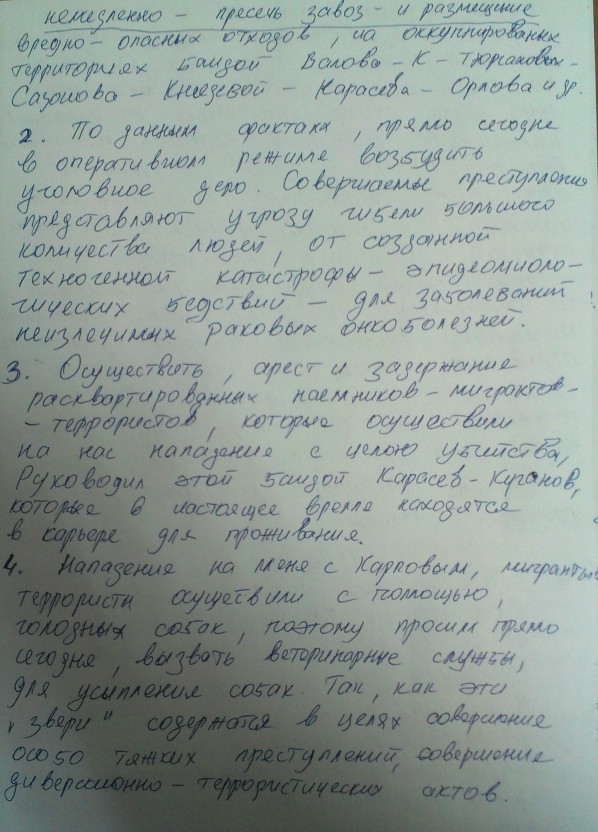 немедленно – пресечь завоз – и размещение
вредно – опасных отходов, на оккупированых
территориях бандой Валова – К – Тюргаковых –
Сазонова – Князевой – Карасева – Орлова и др.
2. По данным фактам, прямо сегодня
в оперативном режиме возбудить
уголовное дело. Совершаемы преступления
представляют угрозу гибели большого
количества людей, от созданной
техногенной катастрофы – эпидеомиоло –
гических бедствий – для заболеваний
неизлечимых раковых онкоболезней.
3. Осуществить, арест и задержание
расквартированных наемников – мигрантов –
– террористов, которые осуществили
на нас нападение с целою убийства,
Руководил этой бандой Карасев – Курганов,
которые в настоящее время находятся
в карьере для проживания.
4. Нападение на меня с Карповым, мигранты
террористы осуществили с помощью,
голодных собак, поэтому просим прямо
сегодня, вызвать ветеринарные службы,
для усыпления собак. Так, как эти
"звери" содержатся в целях совершение
особо тяжких преступлений, совершение
диверсионно – террористических актов.